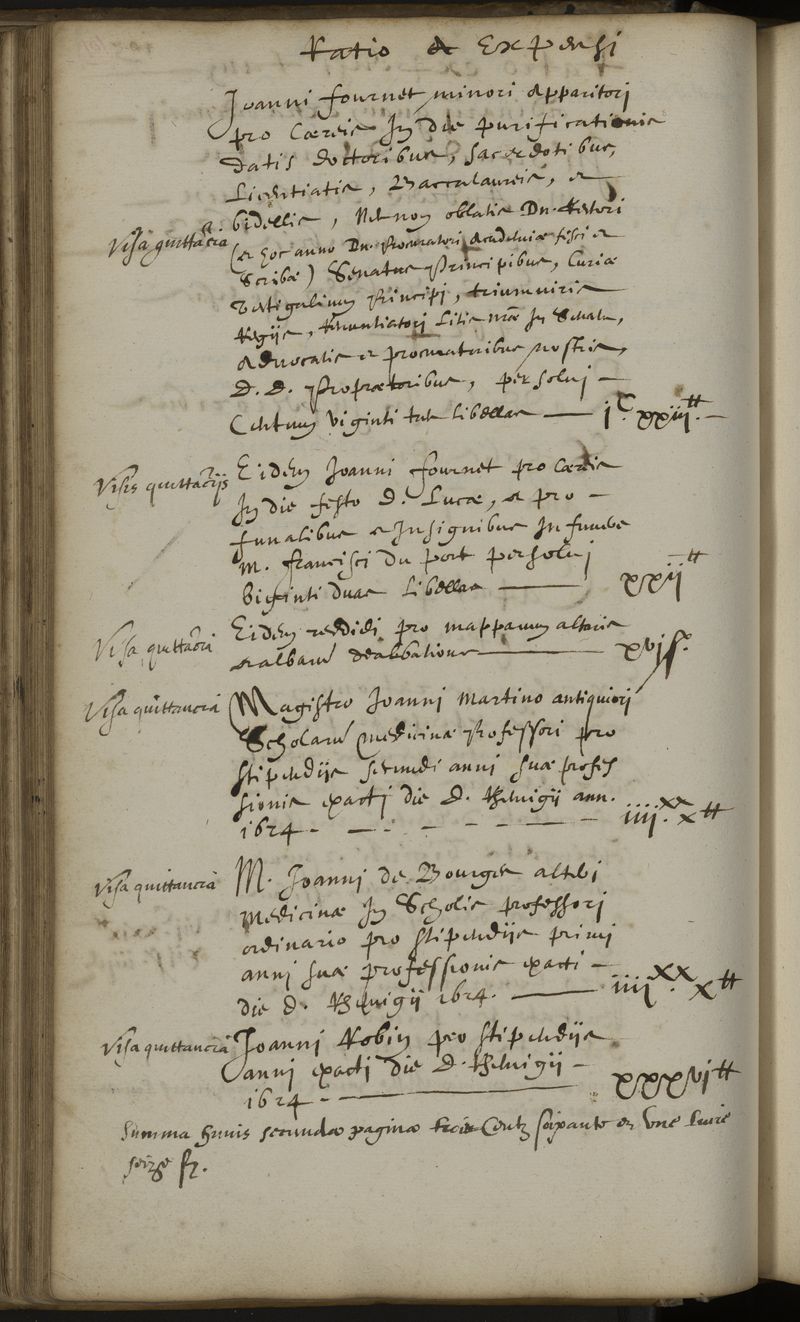 Ratio & Expensi
Joanni fournet minori Apparitori
pro Cæreis In die purificationis
datis doctoribus, sacerdotibus,
Licentiatis, Baccalaureis, et
bidellis, Necnon oblatis Dn. Rectori
Visa quittācia
(et hoc anno Dn. Procuratori Academiæ fisci et
Scribæ) Senatus Principibus, Curiæ
Vectigalium Principi, triumviris
Regiis, Litis in Senatu,
Advocatis et procuratoribus nostris,
D. D. Proprætoribus, persolui
Centum viginti tres libellas — jC. xxiij.tt —
Visis quittāciis
Eidem Joanni fournet pro Cæreis
In die festo D. Lucæ, et pro
funalibus et Insignibus In funere
M. francisci Du port persolui
Viginti duas Libellas — xxiitt
Visa quittācia
Eidem reddidi pro mapparum altaris
et albarū dealbatione — xvjs.
Visa quittancia
Magistro Joanni Martino antiquiori
Scholarū medicinæ Professori pro
stipendiis secundi anni suæ profes
sionis exacti die D. Remigii ann.
1624. — iiii.xx xtt
Visa quittancia
M. Joanni de Bourges alteri
Medicinæ In Scholis professori
ordinario pro stipendiis primi
anni suæ professionis exacti
die D. Remigii 1624. — iiii.xx xtt
Visa quittancia
Joanni Robin pro stipendiis
anni exacti die D. Remigii
1624. — xxxvjtt
Summa huius secundæ paginæ trois Centz soixante et une liure
seize s.